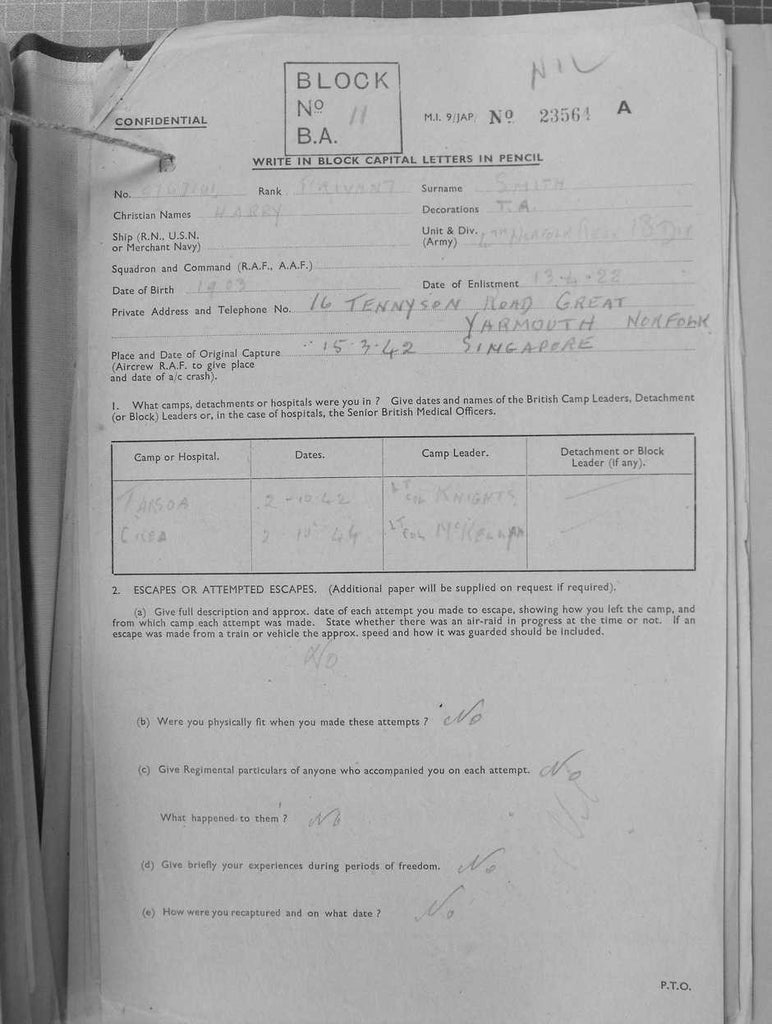 NIL
BLOCK
No 11
B.A.
CONFIDENTIAL
M.I. 9/JAP. No 23564 A
WRITE IN BLOCK CAPITAL LETTERS IN PENCIL
No. Rank PRIVANT Surname SMITH
Christian Names HARRY Decorations T.A.
Ship (R.N., U.S.N.
or Merchant Navy)
Unit & Div.
(Army) NORFOLK REG. 18 DIV
Squadron and Command (R.A.F., A.A.F.)
Date of Birth 1903 Date of Enlistment 13-4-22
Private Address and Telephone No. 16 TENNYSON ROAD GREAT
YARMOUTH NORFOLK
Place and Date of Original Capture 15-3-42 SINGAPORE
(Aircrew R.A.F. to give place
and date of a/c crash).
1. What camps, detachments or hospitals were you in ? Give dates and names of the British Camp Leaders, Detachment
(or Block) Leaders or, in the case of hospitals, the Senior British Medical Officers.
Camp or Hospital. Dates. Camp Leader. Detachment or Block
Leader (if any).
TARSOA 2-10-42 LT COL KNIGHTS
2 10 44 LT COL
2. ESCAPES OR ATTEMPTED ESCAPES. (Additional paper will be supplied on request if required).
(a) Give full description and approx. date of each attempt you made to escape, showing how you left the camp, and
from which camp each attempt was made. State whether there was an air-raid in progress at the time or not. If an
escape was made from a train or vehicle the approx. speed and how it was guarded should be included.
No
(b) Were you physically fit when you made these attempts ? No
(c) Give Regimental particulars of anyone who accompanied you on each attempt. No
What happened to them ? No
(d) Give briefly your experiences during periods of freedom. No
(e) How were you recaptured and on what date ? No
P.T.O.